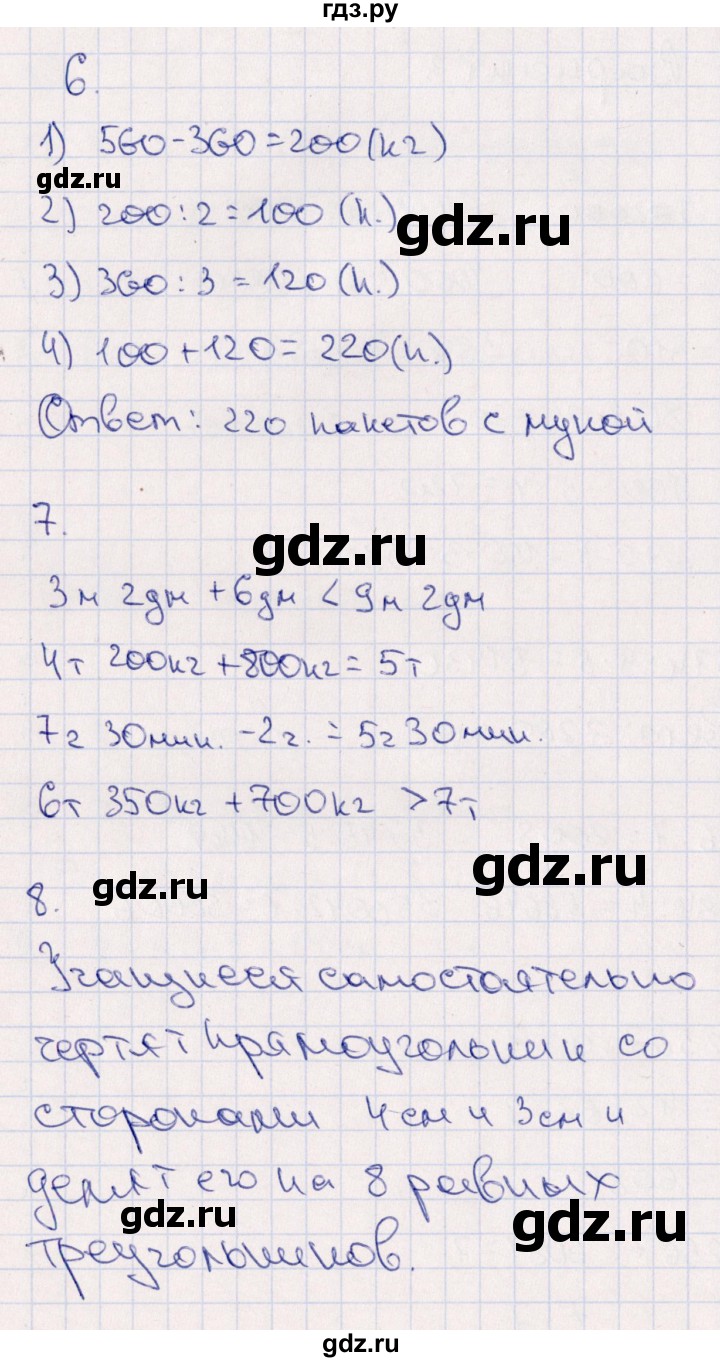 гдз.ру
6.
1) 560-360=200(кг)
gdz.ru
2) 200:2=100 (п.)
gdz.ru
3) 360:3=120(п.)
4) 100+120=220(п.)
Ответ: 220 пакетов с мукой
7.
gdz.ru
3м 2дм +6дм < 9м 2дм
4т 200кг+800кг=5т
7г 30мин. -2г. = 5г 30мин.
6т 350кг +700кг >7т
gdz.ru
8. gdz.ru
Учащиеся самостоятельно
чертят прямоугольник со
сторонами 4см и 3см и
делят его на 8 равных
gdz.ru
gdz.ru
треугольников.
gdz.ru